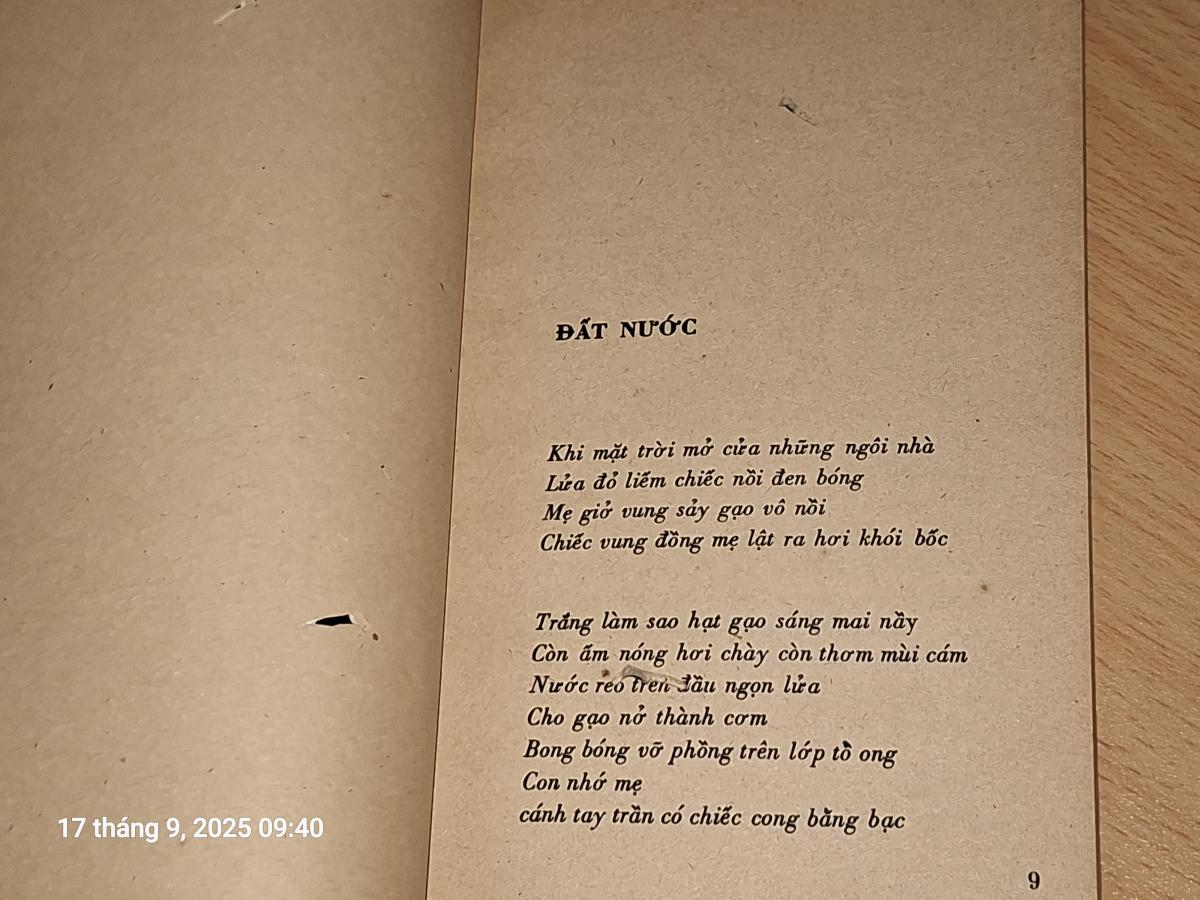 ĐẤT NƯỚC
Khi mặt trời mở cửa những ngôi nhà
Lửa đỏ liếm chiếc nồi đen bóng
Mẹ giở vung sảy gạo vô nồi
Chiếc vung đồng mẹ lật ra hơi khói bốc
Trắng làm sao hạt gạo sáng mai nầy
Còn ấm nóng hơi chày còn thơm mùi cám
Nước reo trên đầu ngọn lửa
Cho gạo nở thành cơm
Bong bóng vỡ phồng trên lớp tổ ong
Con nhớ mẹ
cánh tay trần có chiếc cong bằng bạc
17 tháng 9, 2025 09:40
9